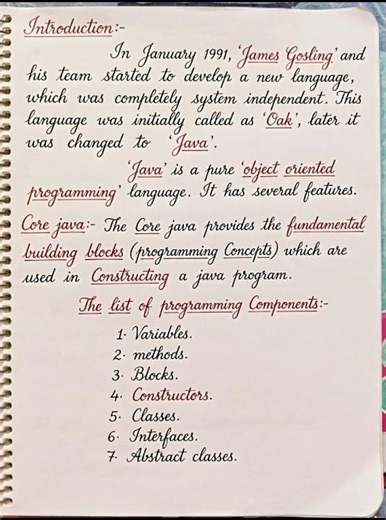 Introduction:-
In January 1991, 'James Gosling' and
his team started to develop a new language,
which was completely system independent. This
language was initially called as 'Oak', later it
was changed to 'Java'.
'Java' is a pure 'object oriented
programming' language. It has several features.
Core java:- The Core java provides the fundamental
building blocks (programming Concepts) which are
used in Constructing a java program.
The list of programming Components:-
1. Variables.
2. methods.
3. Blocks.
4. Constructors.
5. Classes.
6. Interfaces.
7. Abstract classes.